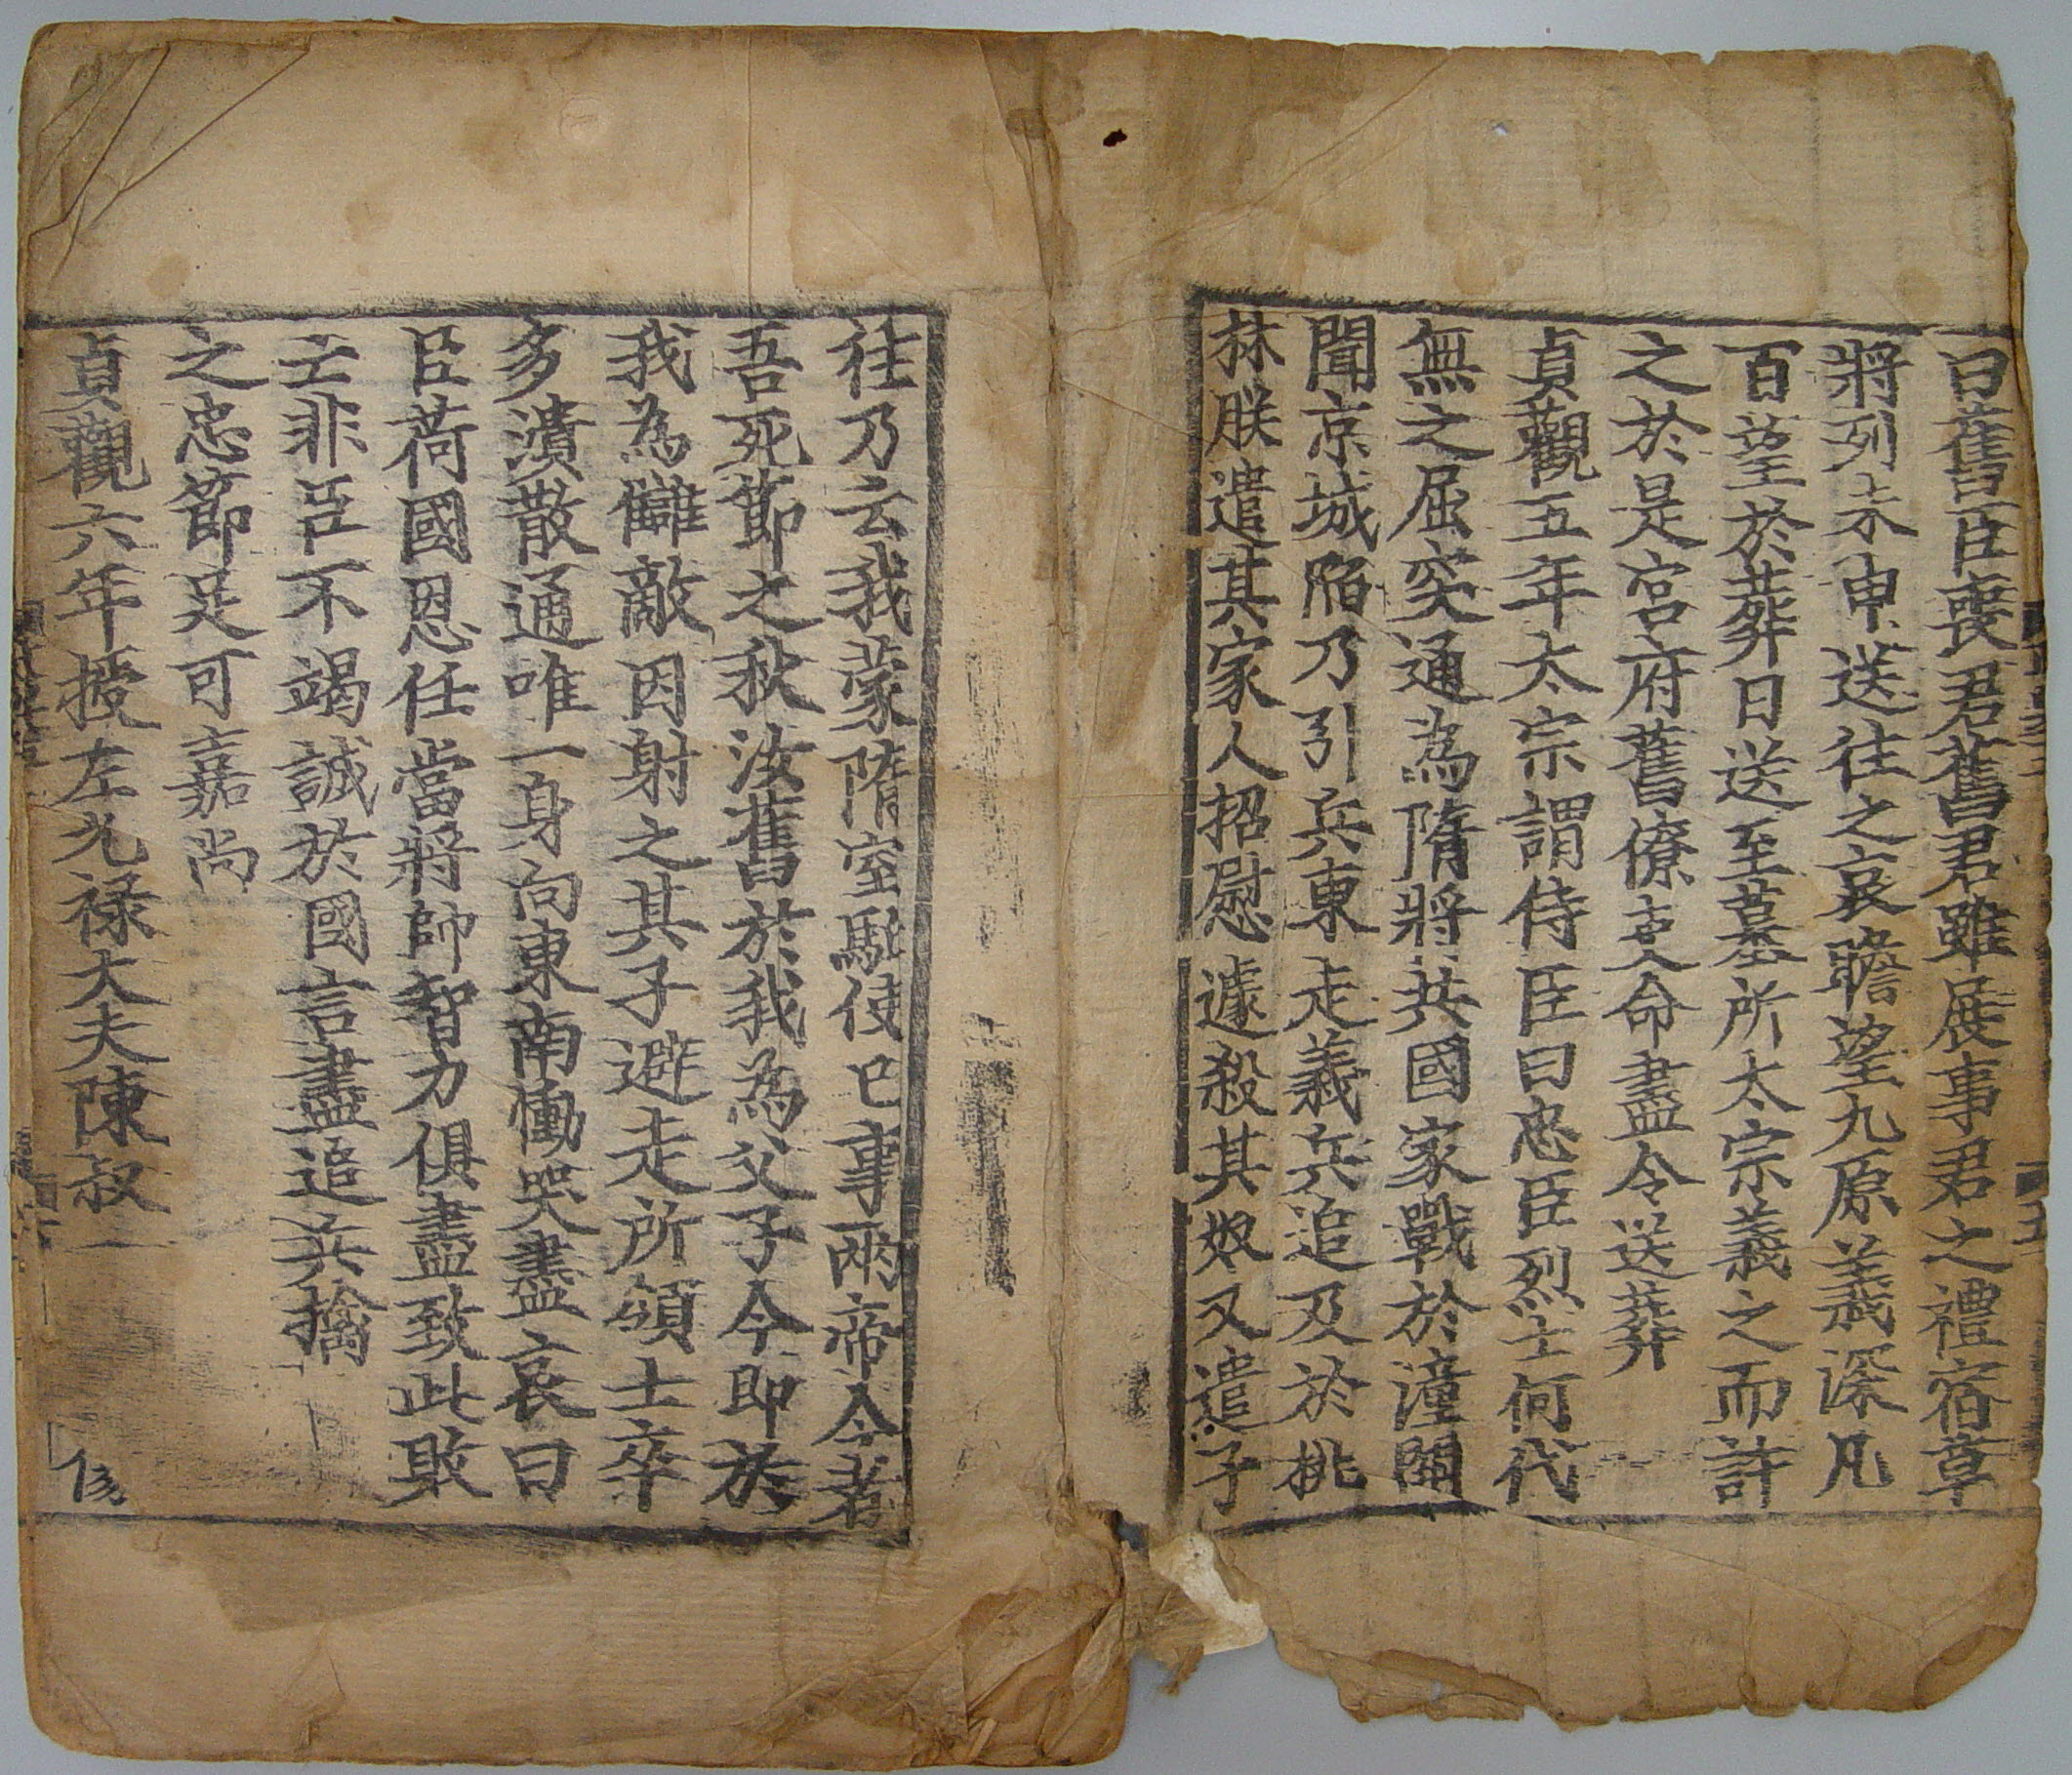 曰舊臣喪君舊君雖展事君之禮宿草
將列未申送往之哀瞻望九原義深凡
百望於葬日送至墓所太宗義之而許
之於是宮府舊僚吏命盡令送葬
貞觀五年太宗謂侍臣曰忠臣烈士何代
無之屈突通為隋將共國家戰於潼關
聞京城陷乃引兵東走義兵追及於桃
林朕遣其家人招慰遽殺其奴又遣子
往乃云我蒙隋室駈使已事兩帝今者
吾死節之秋汝舊於我為父子今即於
我為讎敵因射之其子避走所領士卒
多潰散通唯一身向東南慟哭盡哀曰
臣荷國恩任當將帥智力俱盡致此敗
亡非臣不竭誠於國言盡追兵擒
之忠節足可嘉尚
貞觀六年授左光禄大夫陳叔